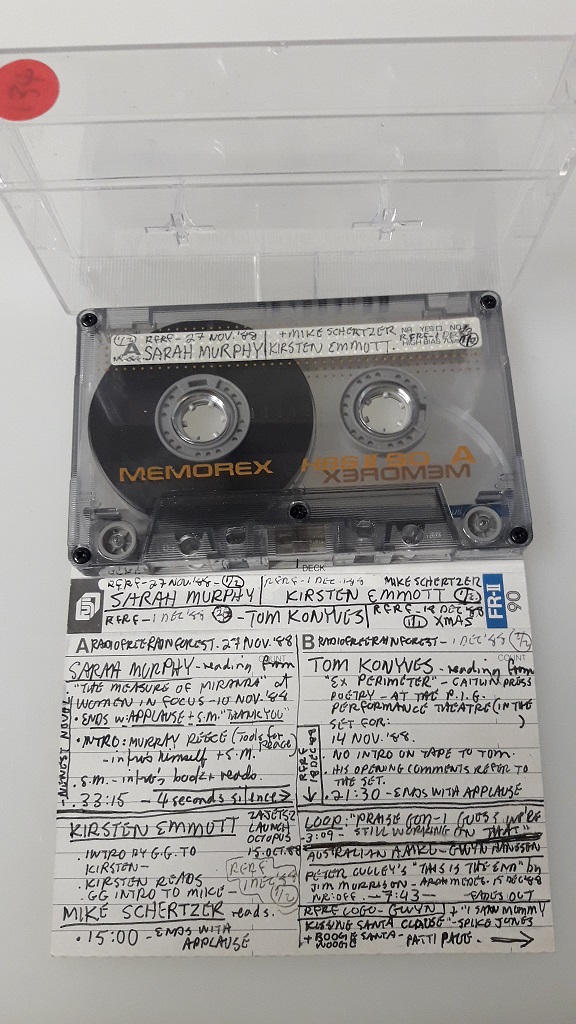 134
RFRF - 27 NOV. '88 + MIKE SCHERTZER
NR YES □ NO
RFRF - 1 DEC
HIGH BIAS
A SARAH MURPHY | KIRSTEN EMMOTT.
MEMOREX HBS II 90 A
MEMOREX
DECK
RFRF - 27 NOV. '88 - (1/2) RFRF - 1 DEC. '88 MIKE SCHERTZER
SARAH MURPHY KIRSTEN EMMOTT (1/2)
RFRF - 1 DEC '88 - TOM KONYVES RFRF - 18 DEC '88 (1/1) XMAS
FR-II 90
A RADIOFREERAINFOREST. 27 NOV. '88
COUNT
SARAH MURPHY - reading from
"THE MEASURE OF MIRANDA" at
WOMEN IN FOCUS - 10 NOV. '88
NEWEST NOVEL
• ENDS W. APPLAUSE + S.M. "THANK YOU"
• INTRO: MURRAY REECE (Tools for Peace)
- intro's himself + S.M.
• S.M. - intro's book + reads.
• 33:15 - 4 seconds silence →
KIRSTEN EMMOTT
LAUNCH
OCTOPUS
15. OCT. 88
• INTRO BY G.G. TO
KIRSTEN -
• KIRSTEN READS
RFRF 1 DEC '88 (1/2)
• GG INTRO TO MIKE -
MIKE SCHERTZER reads.
• 15:00 - ENDS WITH
APPLAUSE
B RADIOFREERAINFOREST - 1 DEC '88 (2/2)
COUNT
TOM KONYVES - reading from
"EX PERIMETER" - CAITLIN PRESS
POETRY - AT THE P.I.G.
PERFORMANCE THEATRE (IN THE
SET FOR: )
14 NOV. '88.
• NO INTRO ON TAPE TO TOM.
• HIS OPENING COMMENTS REFER TO
THE SET.
• 21:30 - ENDS WITH APPLAUSE
RFRF 18 DEC 88
LOOP: "PRAISE GOD - I GUESS WE'RE
- 3:09 - STILL WORKING ON THAT"
AUSTRALIAN - GWYN
PETER CULLEY'S "THIS IS THE END" by
JIM MORRISON - 15 DEC '88
NR: OFF. - 7:43 - FADES OUT
RFRF LOGO - GWYN + "I SAW MOMMY
KISSING SANTA CLAUSE" - SPIKE JONES
+ BOOGIE WOOGIE SANTA - PATTI PAGE. →